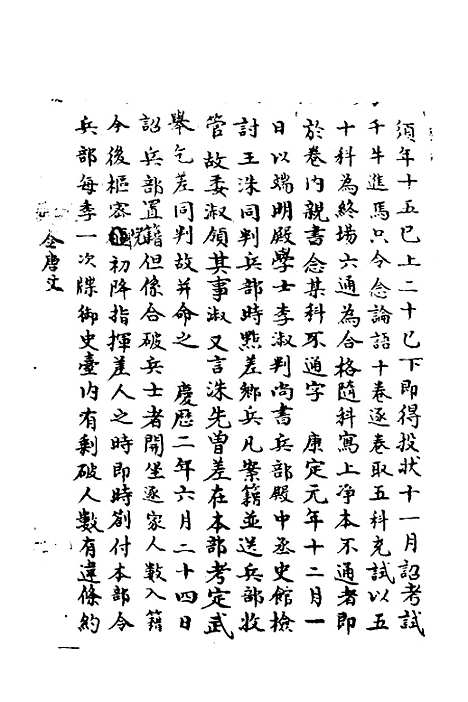 須年十五已上二十已下即得投狀十一月詔考試
千牛進馬只令念論語十卷逐卷取五科充試以五
十科為終場六通為合格隨科寫上淨本不通者即
於卷內親書念某科不通字　康定元年十二月一
日以端明殿學士李淑判尚書兵部殿中丞史館檢
討王洙同判兵部時點差鄉兵凡案籍並送兵部收
管故委淑領其事淑又言洙先曾差在本部考定武
舉乞差同判故并命之　慶歷二年六月二十四日
詔兵部置籍但係合破兵士者開坐逐家人數入籍
今後樞密院初降指揮差人之時即時劄付本部令
兵部每季一次牒御史臺內有剩破人數有違條約
全唐文